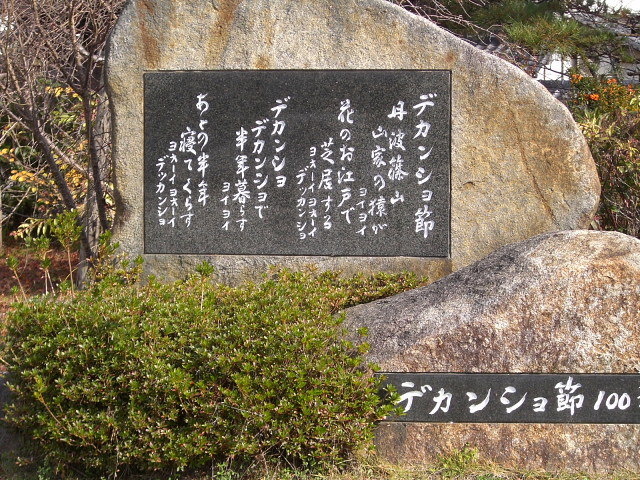 デカンショ節
丹波篠山
山家の猿が
ヨイヨイ
花のお江戸で
芝居する
ヨオーイ ヨオーイ
デッカンショ
デカンショ
デカンショで
半年暮らす
ヨイヨイ
あとの半年
寝てくらす
ヨオーイ ヨオーイ
デッカンショ
デカンショ節100